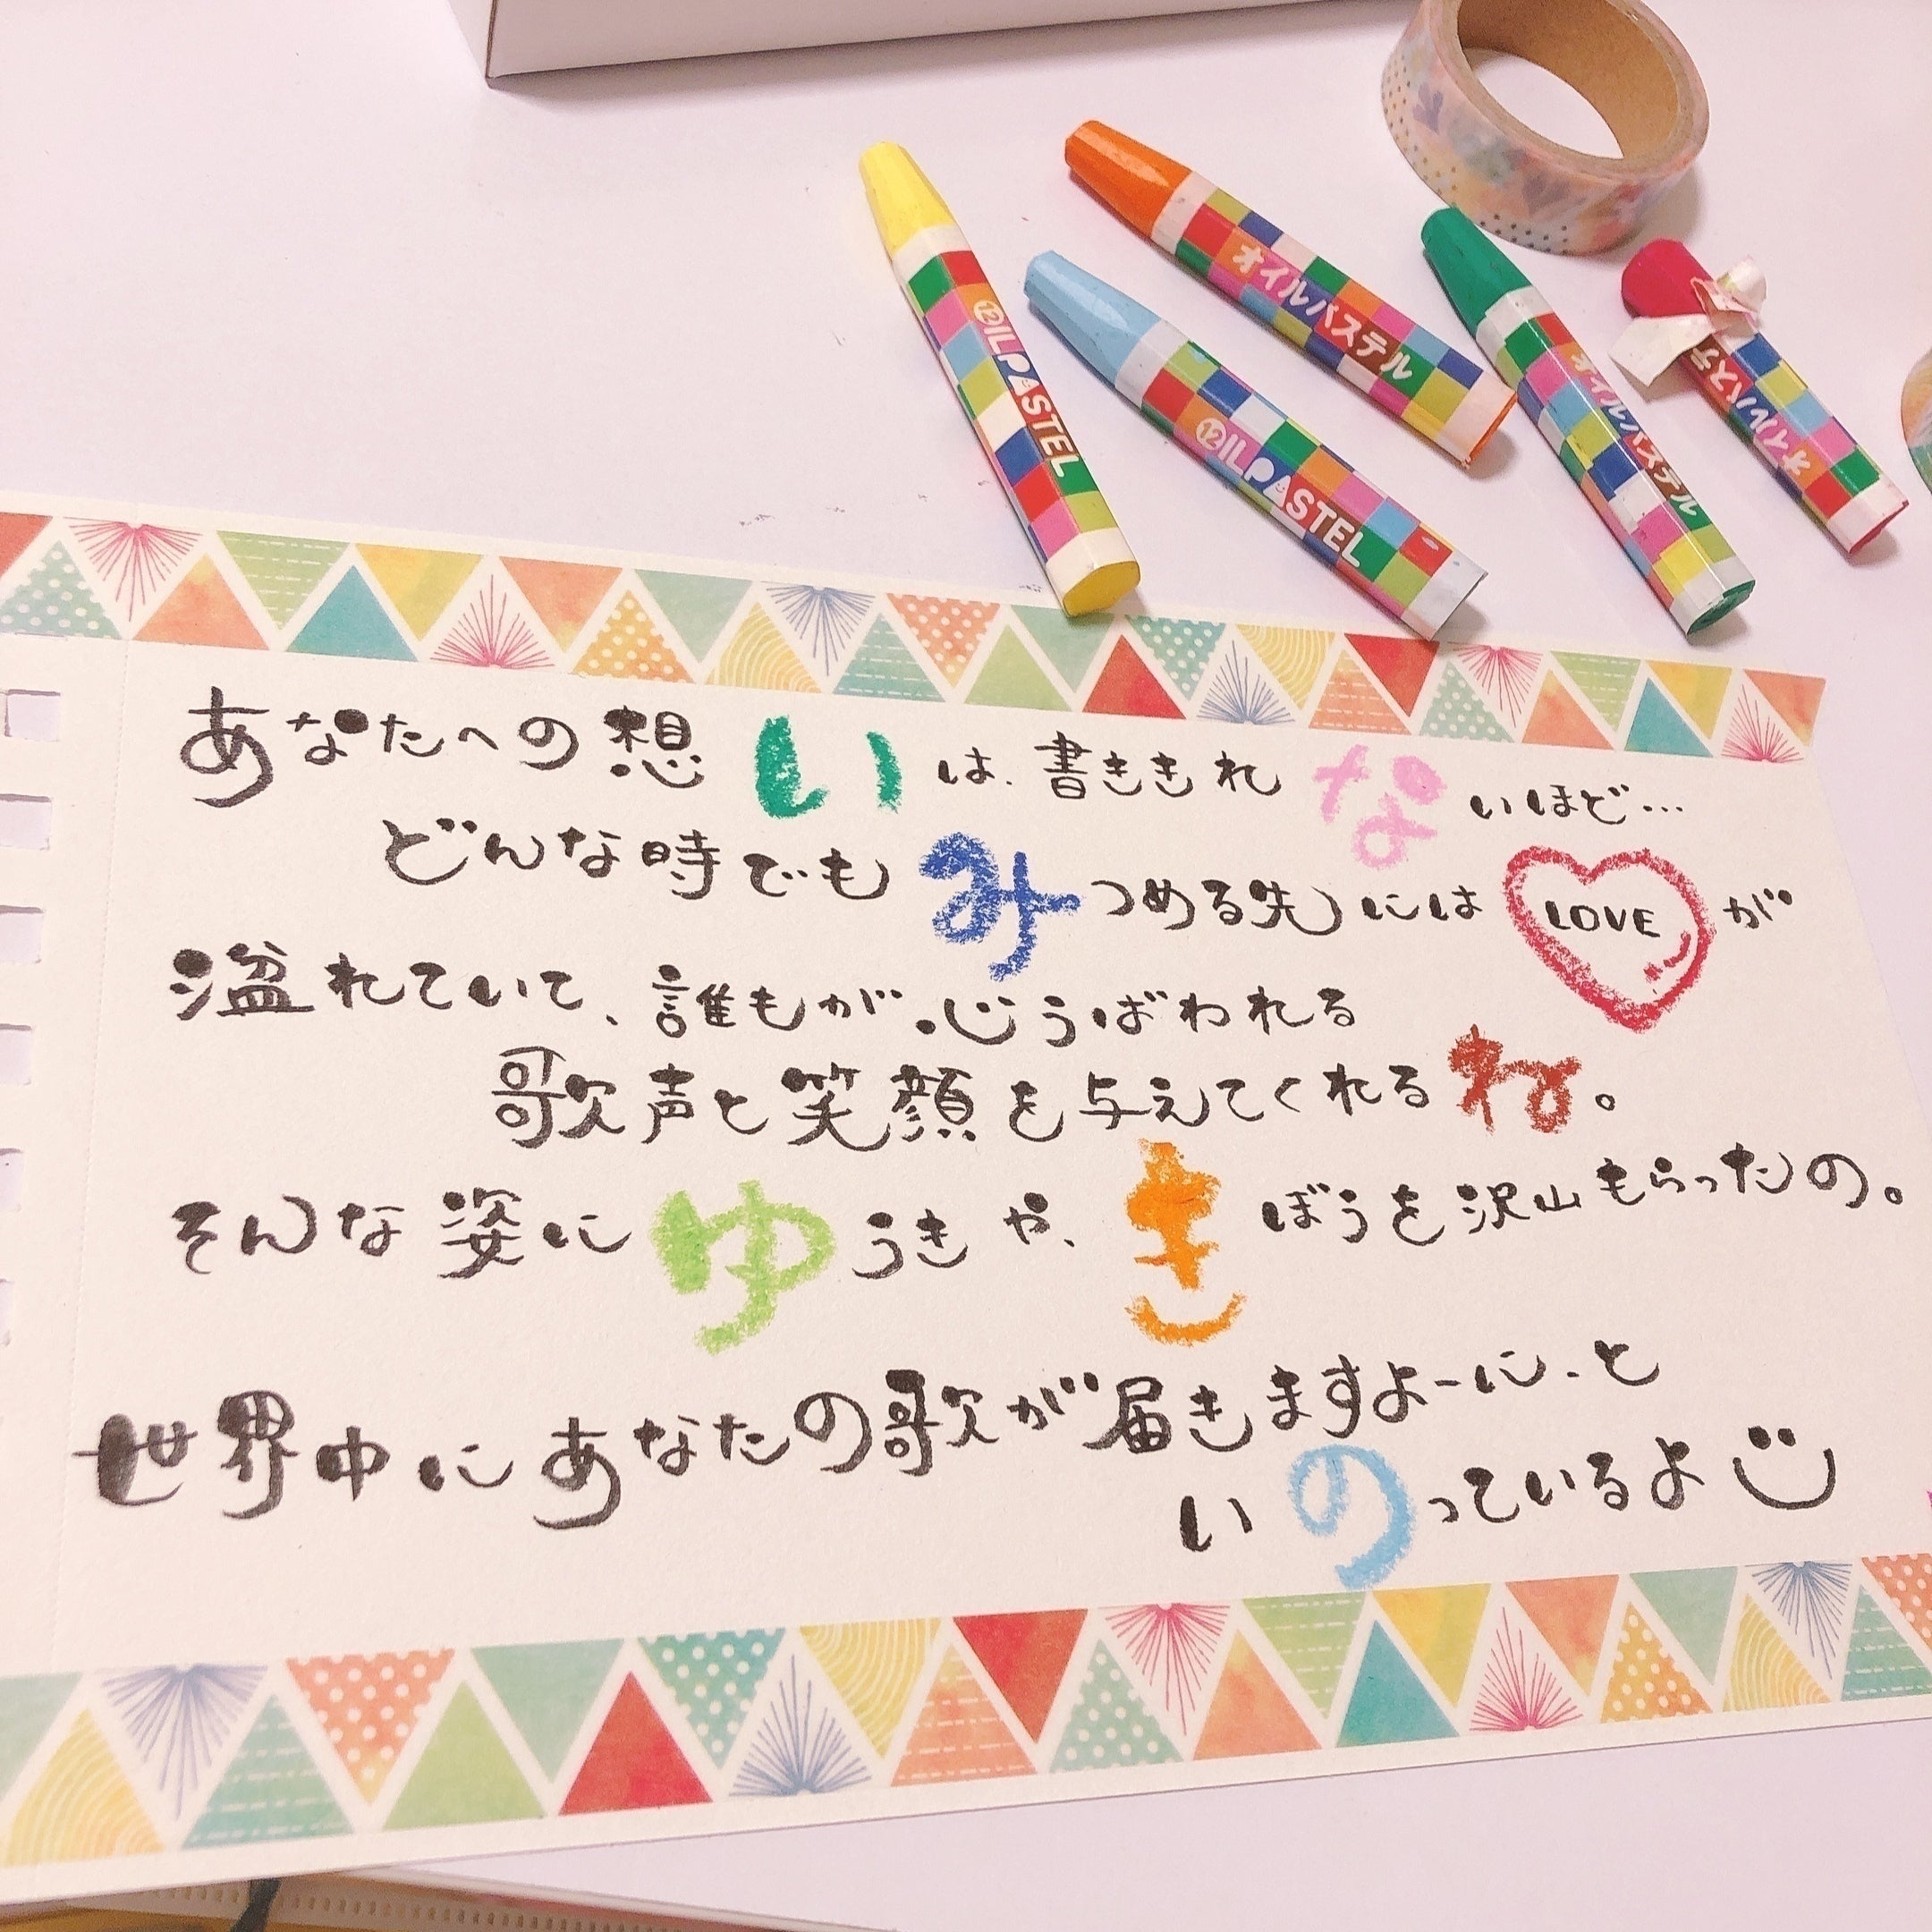 ⑫ILPASTEL
オイルパステル
⑫ILPASTEL
オイルパステル
オイルパステ
あなたへの想いは、書ききれないほど…
どんな時でもみつめる先にはLOVEが
溢れていて、誰もが心うばわれる
歌声と笑顔を与えてくれるね。
そんな姿にゆうきや、きぼうを沢山もらったの。
世界中にあなたの歌が届きますよーに、と
いのっているよ